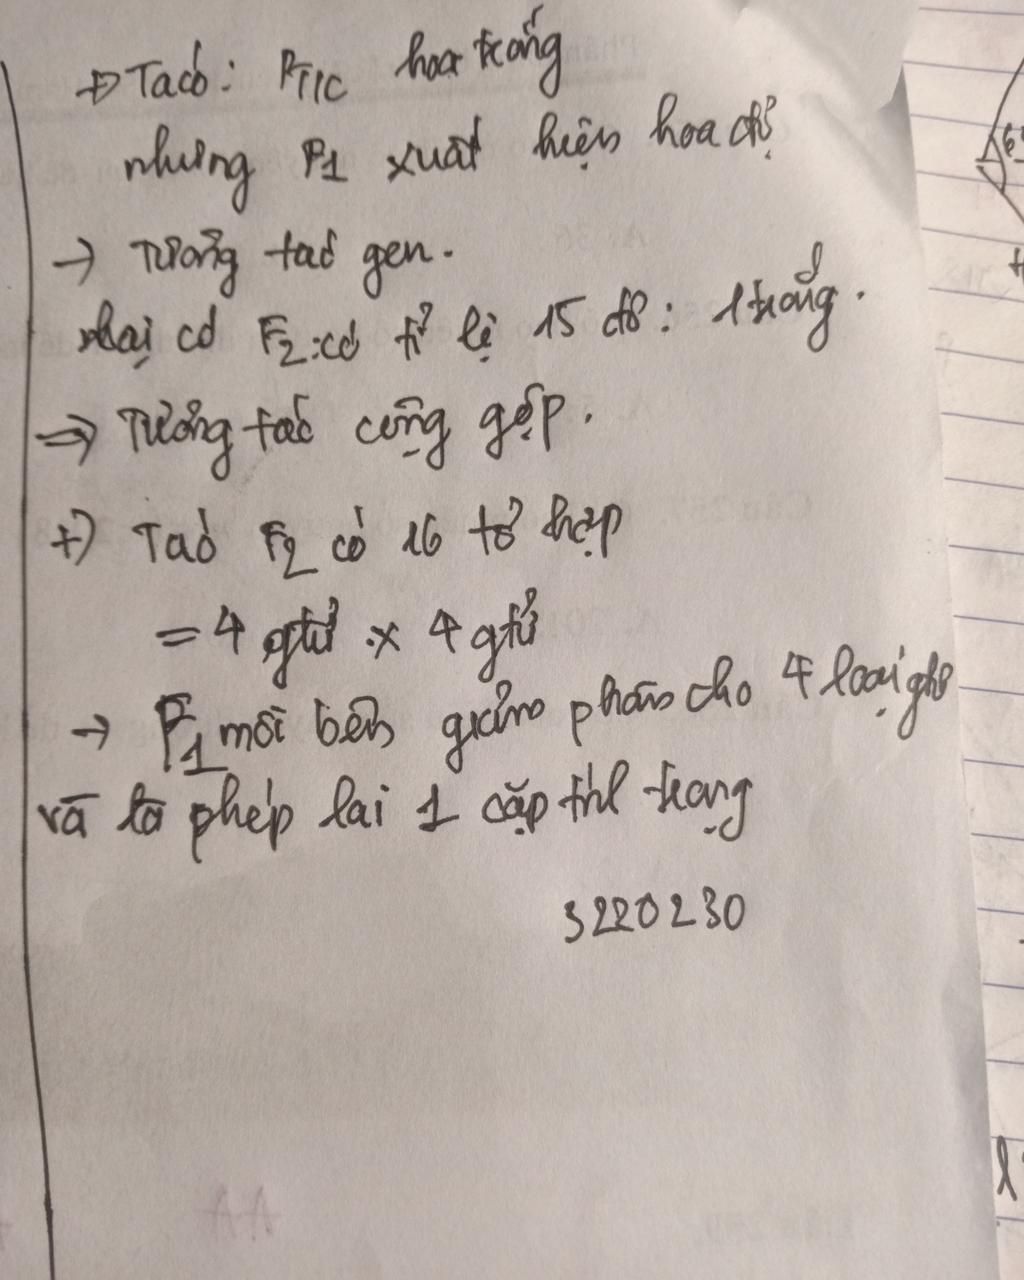 +) Ta có: PT/C hoa trắng
nhưng F1 xuất hiện hoa đỏ
→ Tương tác gen.
Mại có F2: có tỉ lệ 15 đỏ : 1 trắng.
⇒ Tương tác cộng gộp.
+) Ta có F2 có 16 tổ hợp
= 4 gtử × 4 gtử
→ F1 mỗi bên giảm phân cho 4 loại gtử
và là phép lai 1 cặp th/ trạng
3220230
AA